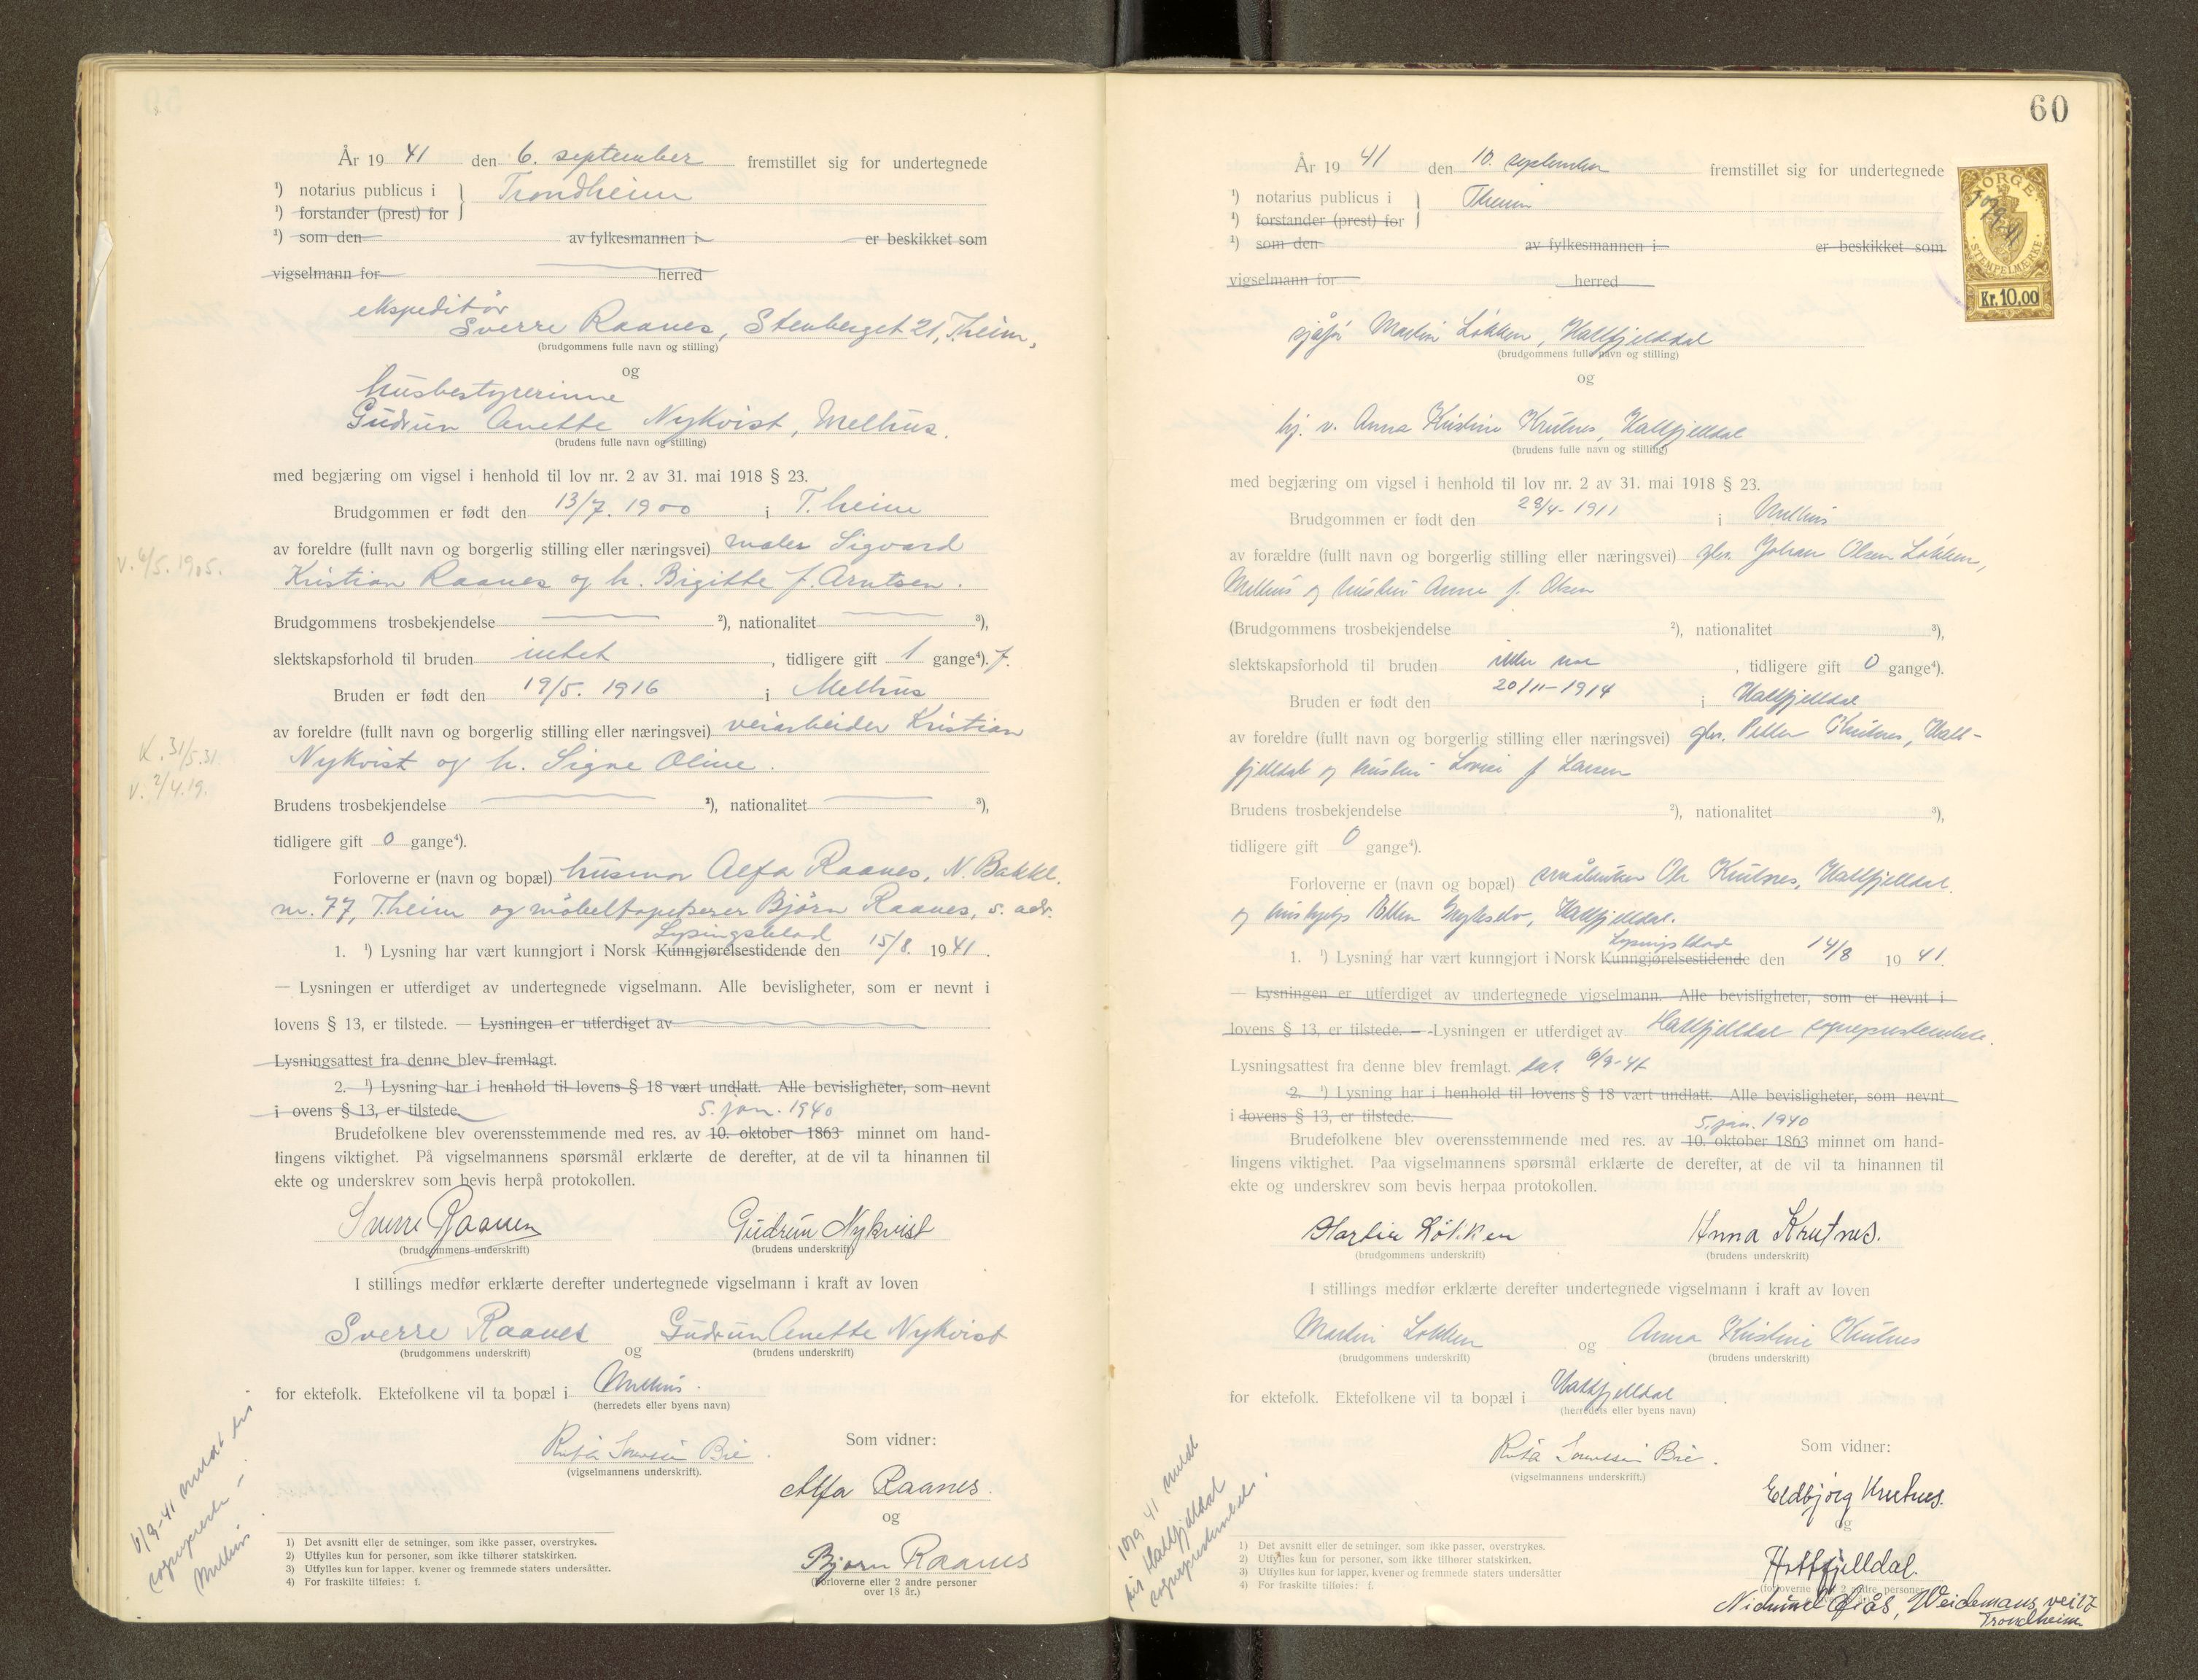 År 19 41 den 6. september fremstillet sig for undertegnede
¹) notarius publicus i } Trondheim
¹) forstander (prest) for
¹) som den av fylkesmannen i er beskikket som
vigselmann for herred
ekspeditør
Sverre Raanes, Stenberget 21, T.heim,
(brudgommens fulle navn og stilling)
og
husbestyrerinne
Gudrun Anette Nykvist, Melhus.
(brudens fulle navn og stilling)
med begjæring om vigsel i henhold til lov nr. 2 av 31. mai 1918 § 23.
Brudgommen er født den 13/7. 1900 i T.heim
av foreldre (fullt navn og borgerlig stilling eller næringsvei) maler Sigvard
v. 6/5. 1905.
Kristian Raanes og h. Birgitte f. Arntsen.
Brudgommens trosbekjendelse ²), nationalitet ³),
slektskapsforhold til bruden intet, tidligere gift 1 gange⁴). f.
Bruden er født den 19/5. 1916 i Melhus
av foreldre (fullt navn og borgerlig stilling eller næringsvei) veiarbeider Kristian
K. 31/5.31.
Nykvist og h. Signe Oline.
v. 2/4.19.
Brudens trosbekjendelse ²), nationalitet ³),
tidligere gift 0 gange⁴).
Forloverne er (navn og bopæl) husmor Alfa Raanes, N. Bakkl.
nr. 77, T.heim og møbeltapetserer Bjørn Raanes, s. adr.
Lysingsblad
1. ¹) Lysning har vært kunngjort i Norsk Kunngjørelsestidende den 15/8. 1941.
— Lysningen er utferdiget av undertegnede vigselmann. Alle bevisligheter, som er nevnt i
lovens § 13, er tilstede. — Lysningen er utferdiget av
Lysningsattest fra denne blev fremlagt.
2. ¹) Lysning har i henhold til lovens § 18 vært undlatt. Alle bevisligheter, som nevnt
i ovens § 13, er tilstede.
5. jan. 1940
Brudefolkene blev overensstemmende med res. av 10. oktober 1863 minnet om hand-
lingens viktighet. På vigselmannens spørsmål erklærte de derefter, at de vil ta hinannen til
ekte og underskrev som bevis herpå protokollen.
Sverre Raanes Gudrun Nykvist
(brudgommens underskrift) (brudens underskrift)
I stillings medfør erklærte derefter undertegnede vigselmann i kraft av loven
Sverre Raanes og Gudrun Anette Nykvist
(brudgommens underskrift) (brudens underskrift)
for ektefolk. Ektefolkene vil ta bopæl i Melhus.
(herredets eller byens navn)
Som vidner:
(vigselmannens underskrift).
Alfa Raanes.
og
Bjørn Raanes
(Forloverne eller 2 andre personer
over 18 år.)
6/9-41 meldt til
sogneprest
Melhus
1) Det avsnitt eller de setninger, som ikke passer, overstrykes.
2) Utfylles kun for personer, som ikke tilhører statskirken.
3) Utfylles kun for lapper, kvener og fremmede staters undersåtter.
4) For fraskilte tilføies: f.
60
År 19 41 den 10. september fremstillet sig for undertegnede
¹) notarius publicus i } Theim
¹) forstander (prest) for
¹) som den av fylkesmannen i er beskikket som
vigselmann for herred
NORGE
10/9-41
STEMPELMERKE
Kr. 10,00
sjåfør Martin Løkken, Hattfjelldal
(brudgommens fulle navn og stilling)
og
hj. v. Anna Kristine Krutnes, Hattfjelldal
(brudens fulle navn og stilling)
med begjæring om vigsel i henhold til lov nr. 2 av 31. mai 1918 § 23.
Brudgommen er født den 28/4-1911 i Melhus
av forældre (fullt navn og borgerlig stilling eller næringsvei) gbr. Johan Olsen Løkken,
Melhus og hustru Anna f. Olsen
(Brudgommens trosbekjendelse ²), nationalitet ³),
slektskapsforhold til bruden, tidligere gift 0 gange⁴).
Bruden er født den 20/11-1914 i Hattfjelldal
av foreldre (fullt navn og borgerlig stilling eller næringsvei) gbr. Petter Krutnes, Hatt-
fjelldal og hustru Lovise f Larsen
Brudens trosbekjendelse ²), nationalitet ³),
tidligere gift 0 gange⁴).
Forloverne er (navn og bopæl) småbruker Ole Krutnes, Hattfjelldal.
og Petter, Hattfjelldal.
Lysingsblad
1. ¹) Lysning har vært kunngjort i Norsk Kunngjørelsestidende den 14/8 1941.
— Lysningen er utferdiget av undertegnede vigselmann. Alle bevisligheter, som er nevnt i
lovens § 13, er tilstede. — -Lysningen er utferdiget av Hattfjelldal sogneprestembete.
Lysningsattest fra denne blev fremlagt. dat. 6/9-41
2. ¹) Lysning har i henhold til lovens § 18 vært undlatt. Alle bevisligheter, som nevnt
i lovens § 13, er tilstede.
5. jan. 1940
Brudefolkene blev overensstemmende med res. av 10. oktober 1863 minnet om hand-
lingens viktighet. Paa vigselmannens spørsmål erklærte de derefter, at de vil ta hinannen til
ekte og underskrev som bevis herpaa protokollen.
Martin Løkken Anna Krutnes.
(brudgommens underskrift) (brudens underskrift)
I stillings medfør erklærte derefter undertegnede vigselmann i kraft av loven
Martin Løkken og Anna Kristine Krutnes
(brudgommens underskrift) (brudens underskrift)
for ektefolk. Ektefolkene vil ta bopæl i Hattfjelldal.
(herredets eller byens navn)
Som vidner:
(vigselmannens underskrift.)
Eldbjørg Krutnes.
og
Hattfjelldal.
(forloverne eller 2 andre personer
Weidemans vei 17
Trondheim
10/9 41 meldt
til Hattfjelldal
sogneprestembete.
1) Det avsnitt eller de setninger, som ikke passer, overstrykes.
2) Utfylles kun for personer, som ikke tilhører statskirken.
3) Utfylles kun for lapper, kvener og fremmede staters undersåtter
4) For fraskilte tilføies: f.